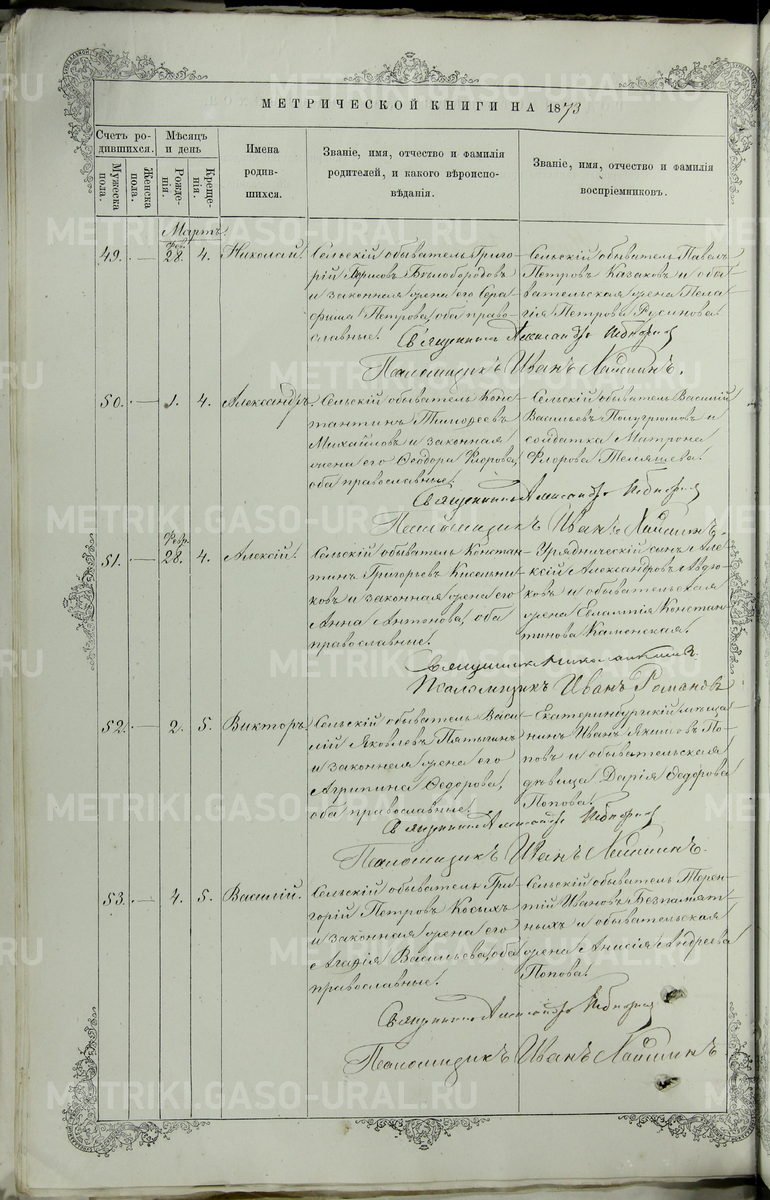 МЕТРИЧЕСКОЙ КНИГИ НА 1873
Счетъ ро-
дившихся.
Мужеска
пола.
Женска
пола.
Мѣсяцъ
и день
Рожде-
нія.
Креще-
нія.
Имена
родив-
шихся.
Званіе, имя, отчество и фамилія
родителей, и какого вѣроиспо-
вѣданія.
Званіе, имя, отчество и фамилія
воспріемниковъ.
Мартъ.
49. — Фев. 28. 4. Николай.
Сельскій обыватель Григо-
рій Бѣлобородовъ
и законная жена его Сера-
фима Петрова, оба право-
славные.
Сельскій обыватель Павелъ
Петровъ Казаковъ и обы-
вательская жена Пела-
гія Петрова Русинова.
Священникъ Александръ
Псаломщикъ Иванъ
50. — 1. 4. Александръ.
Сельскій обыватель Конс-
тантинъ Тимофеевъ
Михайловъ и законная
жена его Ѳеодора Флорова,
оба православные.
Сельскій обыватель Василій
Васильевъ и
солдатка Матрона
Флорова Теляшева.
Священникъ Александръ
Псаломщикъ Иванъ
51. — Февр. 28. 4. Алексій.
Сельскій обыватель Констан-
тинъ Григорьевъ Кисельни-
ковъ и законная жена его
Анна Антонова, оба
православные.
Урядническій сынъ Але-
ксій Александровъ Авдю-
ковъ и обывательская
жена Евлампія Констан-
тинова Каменская.
Священникъ
Псаломщикъ Иванъ Романовъ
52. — 2. 5. Викторъ.
Сельскій обыватель Васи-
лій Яковлевъ Пятыгинъ
и законная жена его
Агрипина Ѳедорова,
оба православные.
Екатеринбургскій мѣща-
нинъ Иванъ Якимовъ По-
повъ и обывательская
дѣвица Дарія Ѳедорова
Попова.
Священникъ Александръ
Псаломщикъ Иванъ
53. — 4. 5. Василій.
Сельскій обыватель Гри-
горій Петровъ Косыхъ
и законная жена его
Агафія Васильева, оба
православные.
Сельскій обыватель Терен-
тій Ивановъ Безпамят-
ныхъ и обывательская
жена Анисія Андреева
Попова.
Священникъ Александръ
Псаломщикъ Иванъ
METRIKI.GASO-URAL.RU